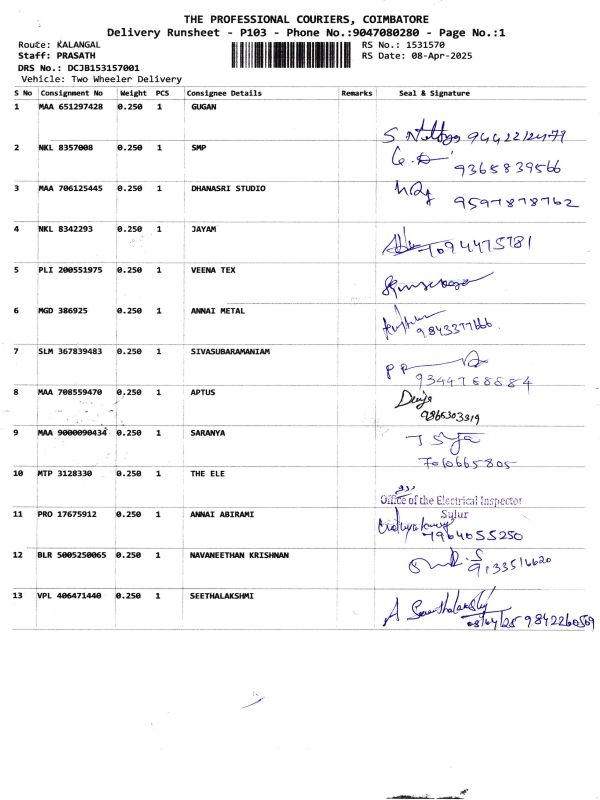 THE PROFESSIONAL COURIERS, COIMBATORE
Delivery Runsheet - P103 - Phone No.:9047080280 - Page No.:1
Route: KALANGAL RS No.: 1531570
Staff: PRASATH RS Date: 08-Apr-2025
DRS No.: DCJB153157001
Vehicle: Two Wheeler Delivery
S No Consignment No Weight PCS Consignee Details Remarks Seal & Signature
1 MAA 651297428 0.250 1 GUGAN
2 NKL 8357008 0.250 1 SMP
9365839566
3 MAA 706125445 0.250 1 DHANASRI STUDIO
9597878762
4 NKL 8342293 0.250 1 JAYAM
5 PLI 200551975 0.250 1 VEENA TEX
6 MGD 386925 0.250 1 ANNAI METAL
7 SLM 367839483 0.250 1 SIVASUBARAMANIAM
8 MAA 708559470 0.250 1 APTUS
9865303319
9 MAA 9000090434 0.250 1 SARANYA
7010665805
10 MTP 3128330 0.250 1 THE ELE
Office of the Electrical Inspector
Sulur
11 PRO 17675912 0.250 1 ANNAI ABIRAMI
7964055250
12 BLR 5005250065 0.250 1 NAVANEETHAN KRISHNAN
13 VPL 406471440 0.250 1 SEETHALAKSHMI
A Seethalakshy
08/04/25 9842260569